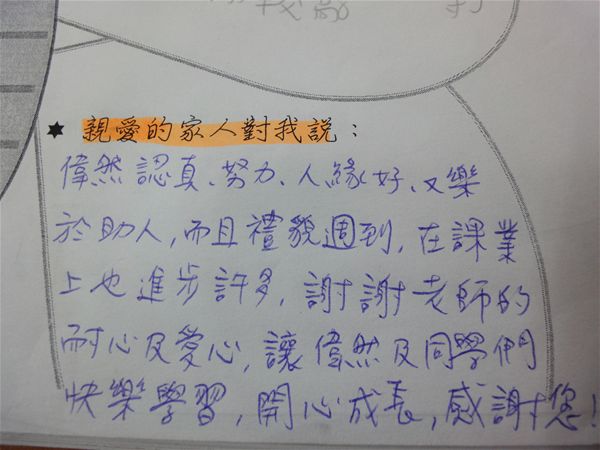 ★ 親愛的家人對我說：
偉然認真、努力、人緣好、又樂
於助人，而且禮貌週到，在課業
上也進步許多，謝謝老師的
耐心及愛心，讓偉然及同學們
快樂學習，開心成長，感謝您！